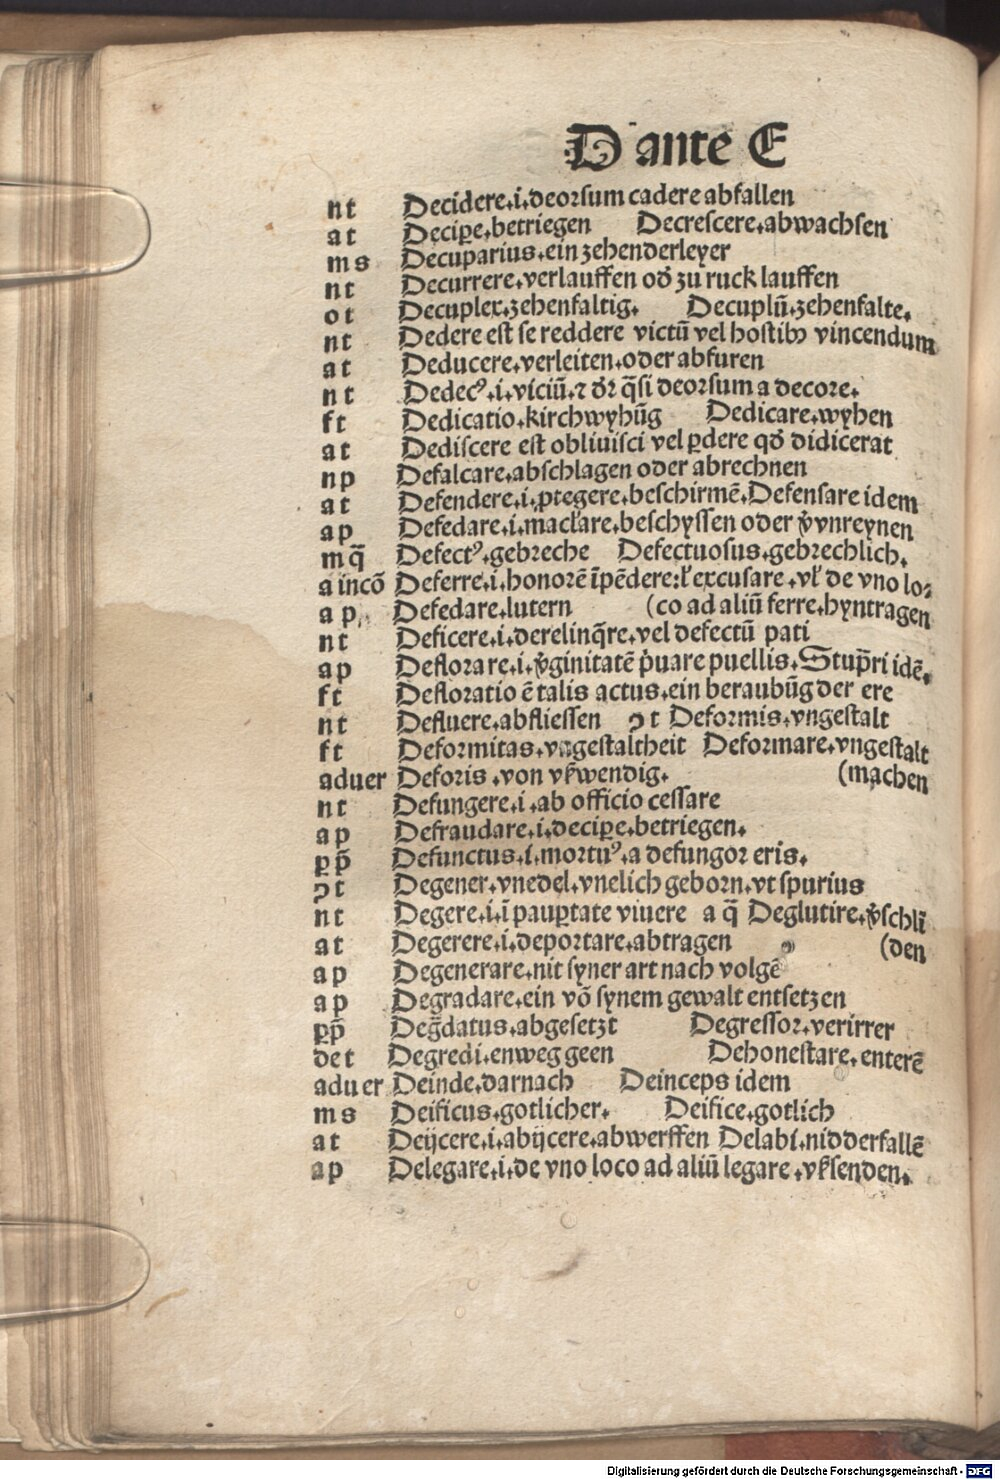 D ante E
nt Decidere.i.deorsum cadere abfallen
at Decipe.betriegen Decrescere.abwachsen
ms Decuparius.ein zehenderleyer
nt Decurrere.verlauffen oď zu ruck lauffen
ot Decuplex.zehenfaltig. Decuplū.zehenfalte.
nt Dedere est se reddere victū vel hostibꝰ vincendum
at Deducere.verleiten.oder abfuren
nt Dedecꝰ.i.viciū.⁊ dr̄ q̄si deorsum a decore.
ft Dedicatio.kirchwyhūg Dedicare.wyhen
at Dediscere est obliuisci vel ꝑdere qď didicerat
np Defalcare.abschlagen oder abrechnen
at Defendere.i.ꝓtegere.beschirmē.Defensare idem
ap Defedare.i.macl̄are.beschyssen oder v̓vnreynen
mq̄ Defectꝰ.gebreche Defectuosus.gebrechlich.
a incō Deferre.i.honorē īpēdere:ł excusare.vł de vno lo⸗
ap. Defedare.lutern (co ad aliū ferre.hyntragen
nt Deficere.i.derelinq̄re.vel defectū pati
ap Deflorare.i.v̓ginitatē p̓uare puellis.Stup̄ri idē.
ft Defloratio ē talis actus.ein beraubūg der ere
nt Defluere.abfliessen ꝯt Deformis.vngestalt
ft Deformitas.vngestaltheit Deformare.vngestalt
aduer Deforis.von vßwendig. (machen
nt Defungere.i.ab officio cessare
ap Defraudare.i.decipe.betriegen.
ꝑp̄ Defunctus.i.mortuꝰ.a defungor eris.
ꝯt Degener.vnedel.vnelich geborn.vt spurius
nt Degere.i.ī pauꝑtate viuere a q̄ Deglutire.v̓schlī
at Degerere.i.deportare.abtragen (den
ap Degenerare.nit syner art nach volgē
ap Degradare.ein vō synem gewalt entsetzen
ꝑp̄ Deg̃datus.abgesetzt Degressor.verirrer
det Degredi.enweg geen Dehonestare.enterē
aduer Deinde.darnach Deinceps idem
ms Deificus.gotlicher. Deifice.gotlich
at Deijcere.i.abijcere.abwerffen Delabi.nidderfallē
ap Delegare.i.de vno loco ad aliū legare.vßsenden.
Digitalisierung gefördert durch die Deutsche Forschungsgemeinschaft - DFG